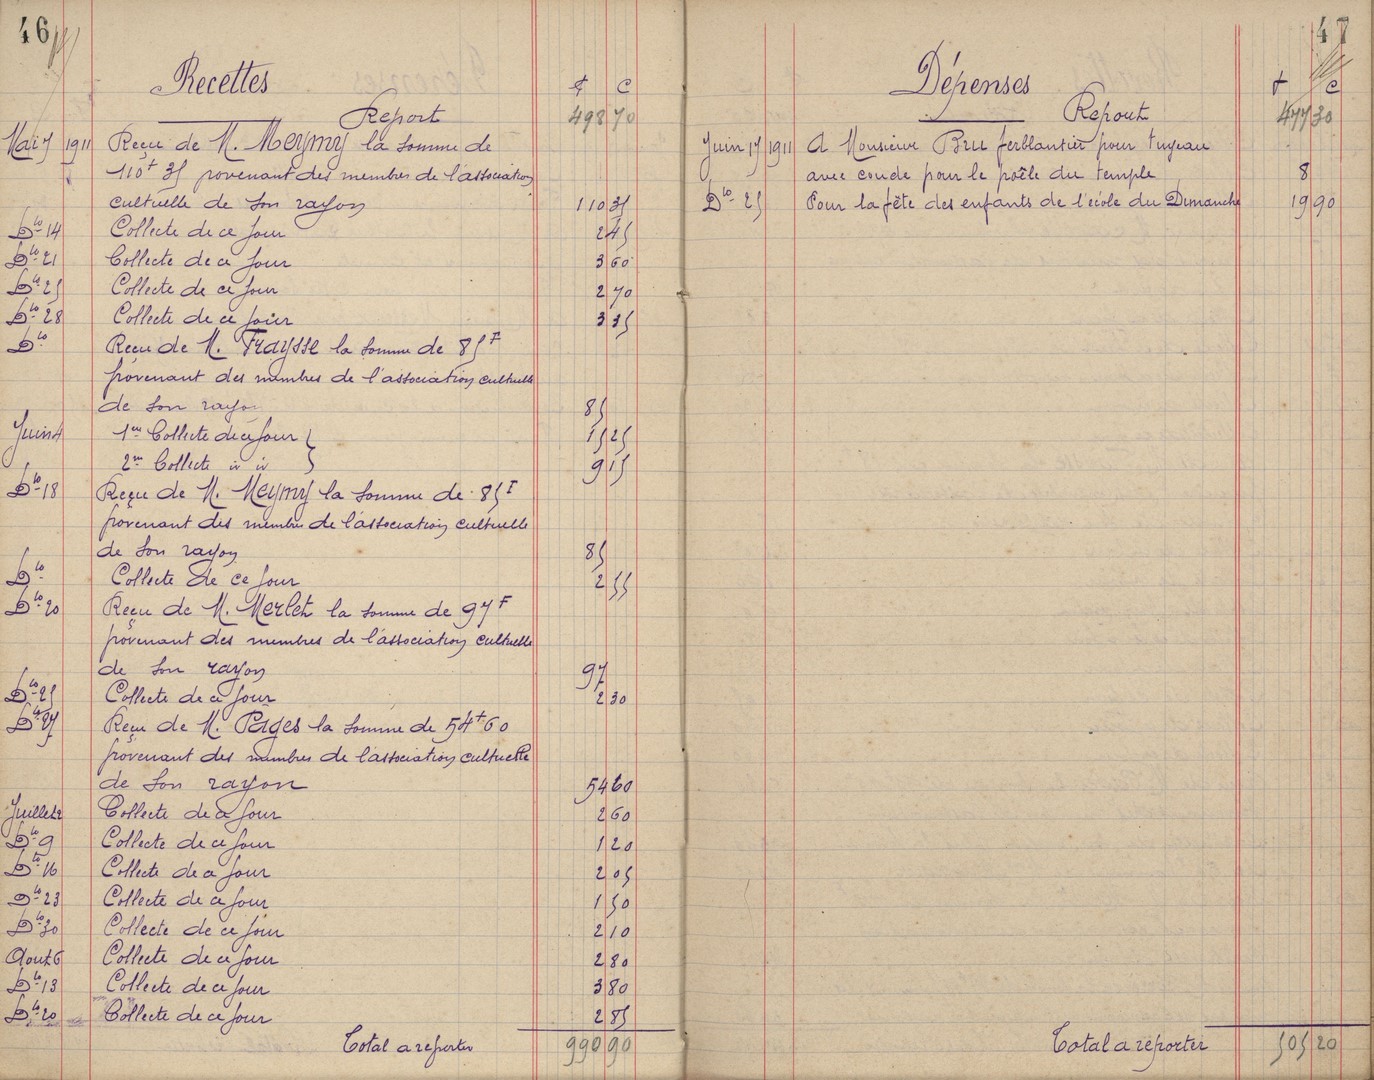 46
Recettes
f c
Report 498 70
Mai 7 1911 Reçu de M. Meymy la somme de
110f 35 provenant des membres de l'association
cultuelle de son rayon 110 35
Dto 14 Collecte de ce jour 2 45
Dto 21 Collecte de ce jour 3 60
Dto 25 Collecte de ce jour 2 70
Dto 28 Collecte de ce jour 3 35
Dto Reçu de M. Fraysse la somme de 85F
provenant des membres de l'association cultuelle
de son rayon 85
Juin 4 1re Collecte de ce jour 15 25
2me Collecte 9 15
Dto 18 Reçu de M. Meymy la somme de 85F
provenant des membre de l'association cultuelle
de son rayon 85
Dto Collecte de ce jour 2 55
Dto 20 Reçu de M. Merlet la somme de 97F
provenant des membres de l'association cultuelle
de son rayon 97
Dto 25 Collecte de ce jour 2 30
Dto 27 Reçu de M. Pages la somme de 54f 60
provenant des membres de l'association cultuelle
de son rayon 54 60
Juillet 2 Collecte de ce jour 2 60
Dto 9 Collecte de ce jour 1 20
Dto 16 Collecte de ce jour 2 05
Dto 23 Collecte de ce jour 1 50
Dto 30 Collecte de ce jour 2 10
Aout 6 Collecte de ce jour 2 80
Dto 13 Collecte de ce jour 3 80
Dto 20 Collecte de ce jour 2 85
Total a reporter 990 90
47
Dépenses
f c
Report 477 30
Juin 17 1911 A Monsieur Bru ferblantier pour tuyeau
avec coude pour le poêle du temple 8
Dto 25 Pour la fête des enfants de l'école du Dimanche 19 90
Total a reporter 505 20